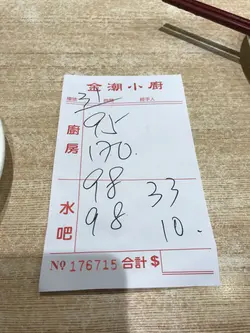 金潮小廚
檯號 31 經手人
95
廚房
170.
98 33
水吧
98 10.
No 176715 合計$